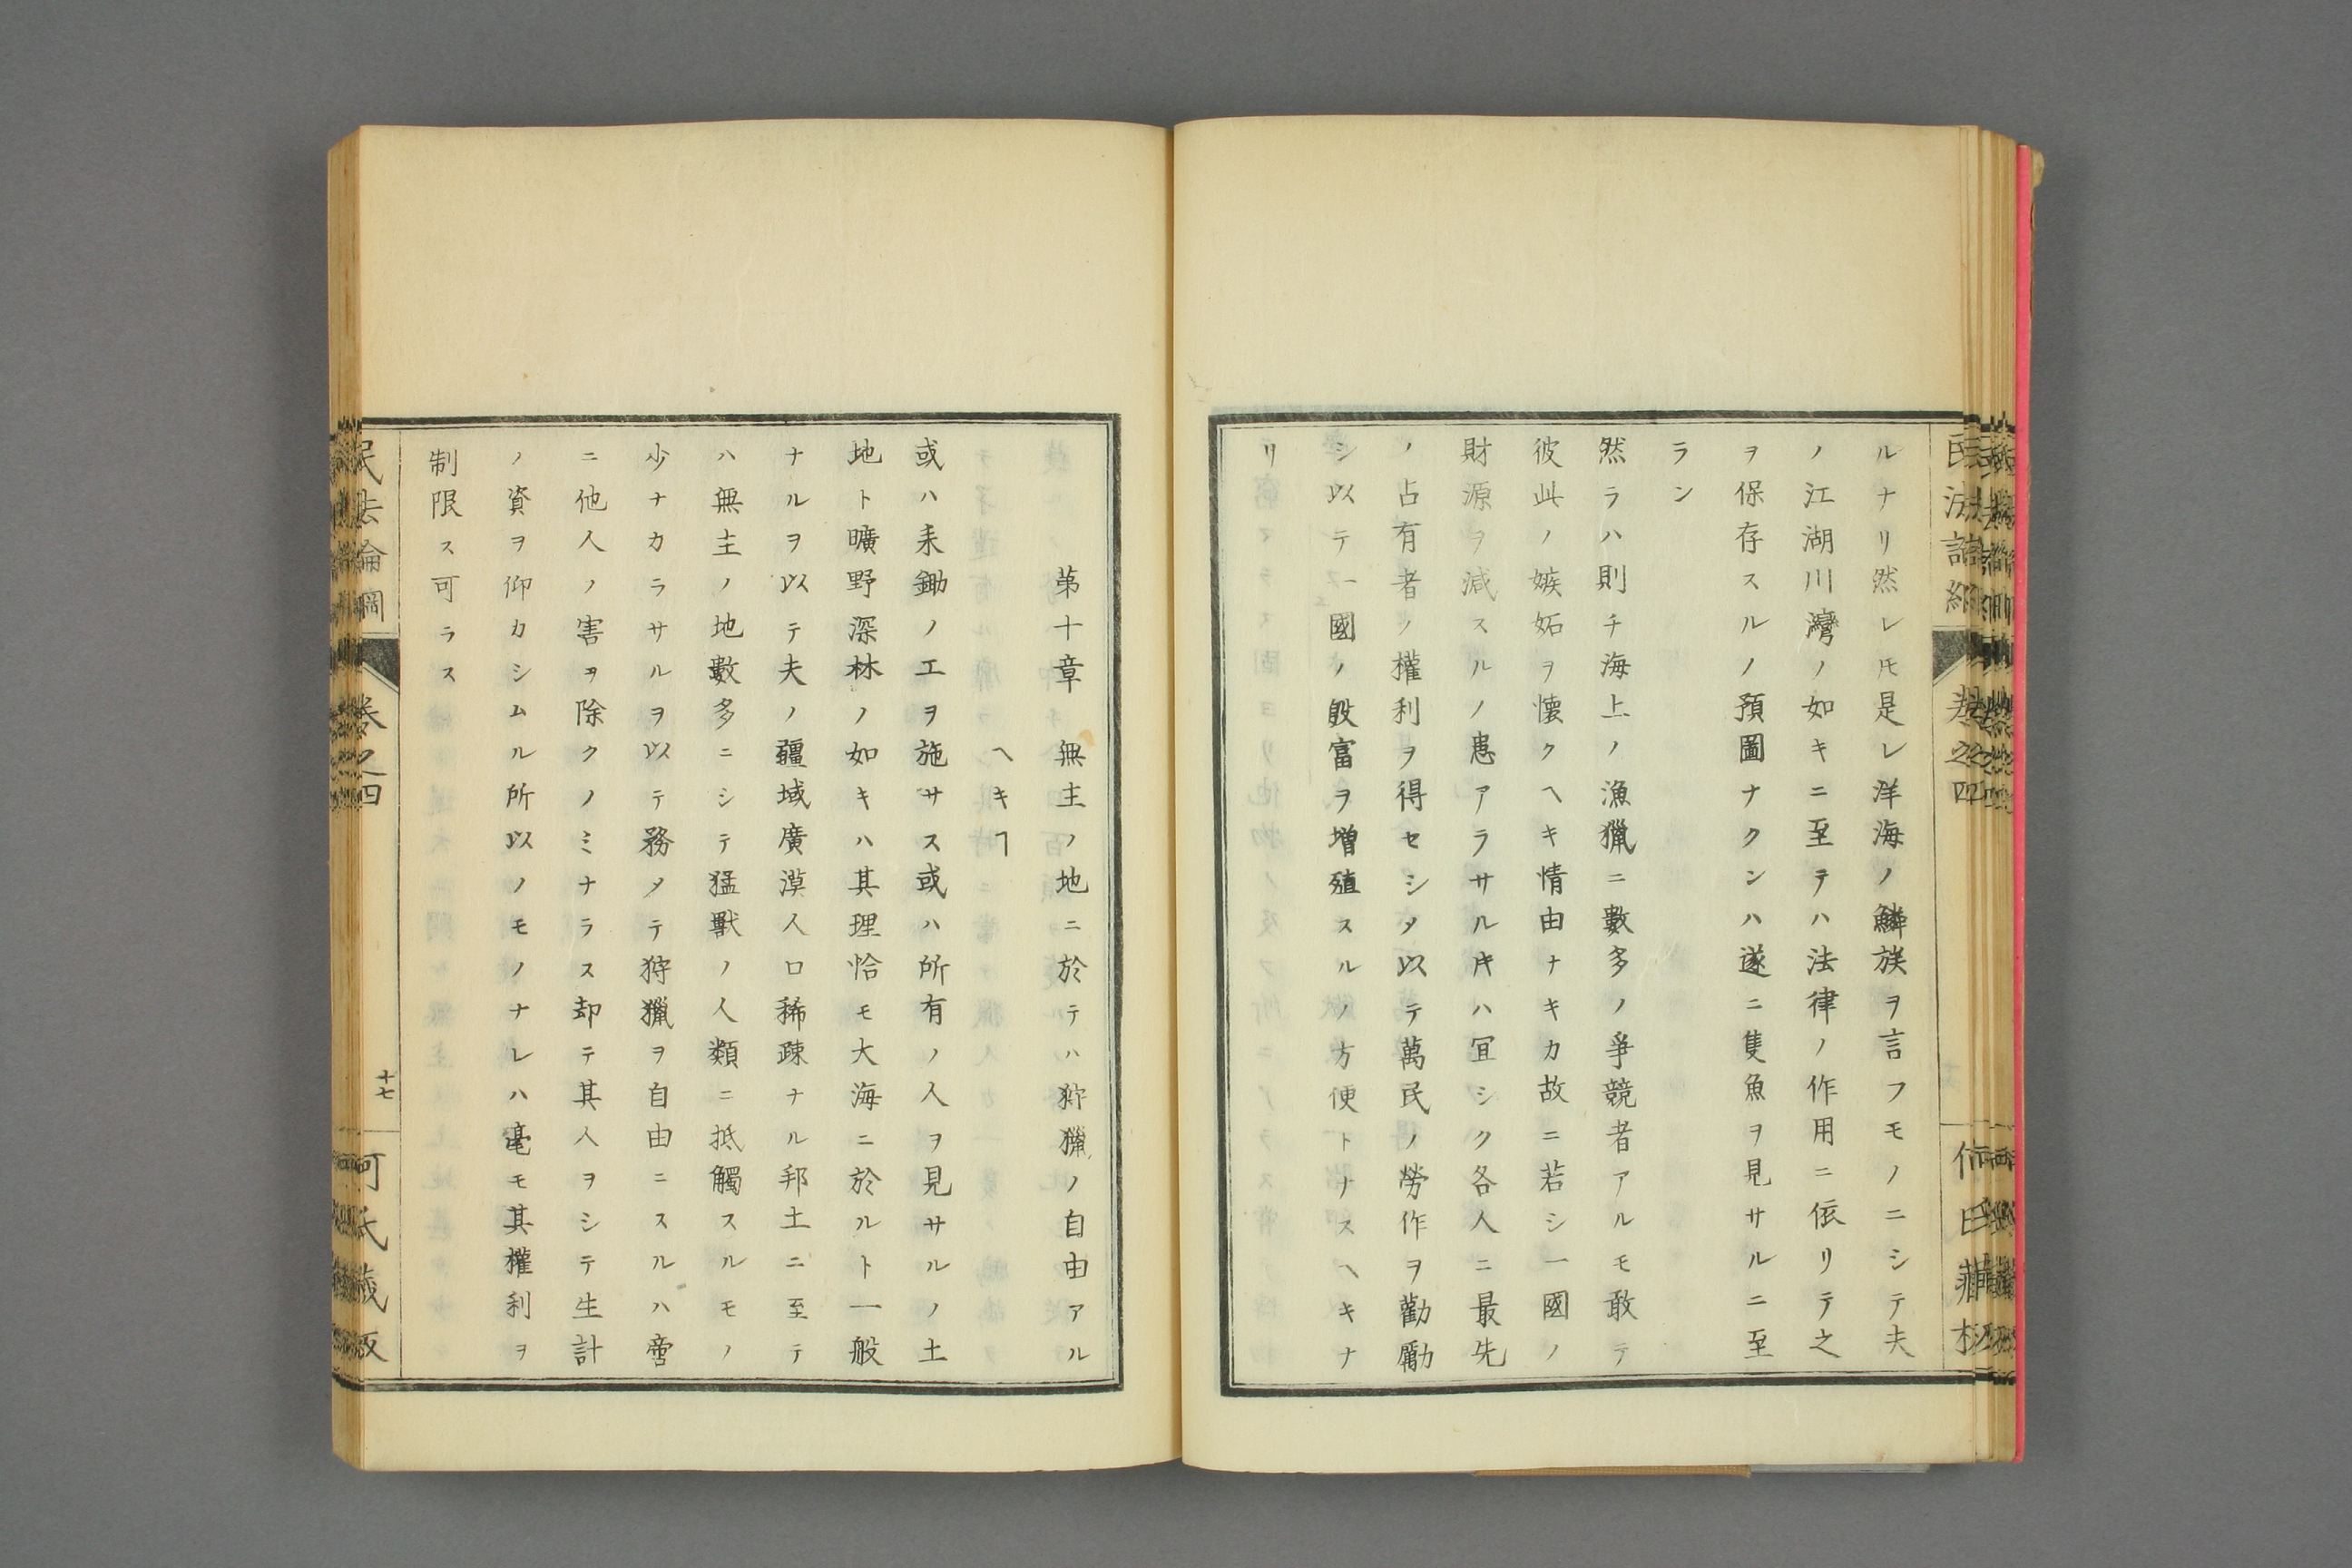 ルナリ然レ𪜈是レ洋海ノ鱗族ヲ言フモノニシテ夫
ノ江湖川灣ノ如キニ至テハ法律ノ作用ニ依リテ之
ヲ保存スルノ預圖ナクンハ遂ニ隻魚ヲ見サルニ至
ラン
然ラハ則チ海上ノ漁獵ニ數多ノ爭競者アルモ敢テ
彼此ノ嫉妬ヲ懐クヘキ情由ナキカ故ニ若シ一國ノ
財源ヲ減スルノ患アラサル𪜈ハ宜シク各人ニ最先
ノ占有者ノ權利ヲ得セシメ以テ萬民ノ勞作ヲ勸勵
シ以テ一國ノ殷富ヲ增殖スルノ方便トナスヘキナ
リ
第十章 無主ノ地ニ於テハ狩獵ノ自由アル
ヘキヿ
或ハ耒鋤ノ工ヲ施サス或ハ所有ノ人ヲ見サルノ土
地ト曠野深林ノ如キハ其理恰モ大海ニ於ルト一般
ナルヲ以テ夫ノ疆域廣漠人口稀疎ナル邦土ニ至テ
ハ無主ノ地數多ニシテ猛獸ノ人類ニ抵觸スルモノ
少ナカラサルヲ以テ務メテ狩獵ヲ自由ニスルハ啻
ニ他人ノ害ヲ除クノミナラス却テ其人ヲシテ生計
ノ資ヲ仰カシムル所以ノモノナレハ毫モ其權利ヲ
制限ス可ラス
民法論綱
卷之四
十七
何氏藏版